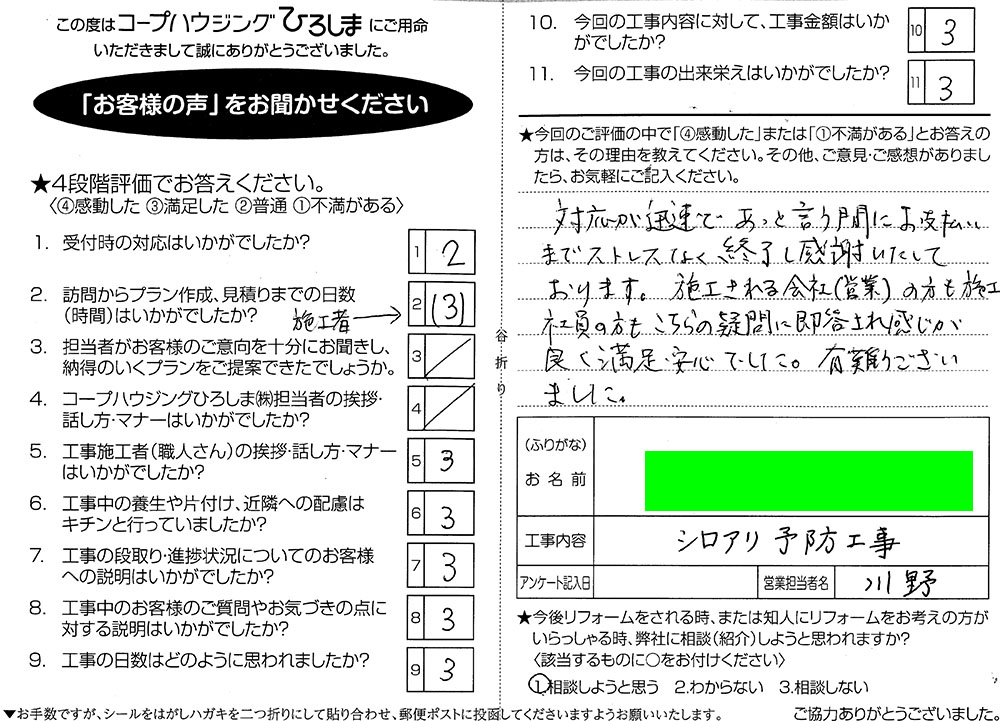 この度はコープハウジングひろしまにご用命
いただきまして誠にありがとうございました。
「お客様の声」をお聞かせください
★4段階評価でお答えください。
〈④感動した ③満足した ②普通 ①不満がある〉
1. 受付時の対応はいかがでしたか?
1 2
2. 訪問からプラン作成、見積りまでの日数
(時間)はいかがでしたか?
施工者→
2 (3)
3. 担当者がお客様のご意向を十分にお聞きし、
納得のいくプランをご提案できたでしょうか。
3 /
4. コープハウジングひろしま㈱担当者の挨拶・
話し方・マナーはいかがでしたか?
4 /
5. 工事施工者(職人さん)の挨拶・話し方・マナー
はいかがでしたか?
5 3
6. 工事中の養生や片付け、近隣への配慮は
キチンと行っていましたか?
6 3
7. 工事の段取り・進捗状況についてのお客様
への説明はいかがでしたか?
7 3
8. 工事中のお客様のご質問やお気づきの点に
対する説明はいかがでしたか?
8 3
9. 工事の日数はどのように思われましたか?
9 3
▼お手数ですが、シールをはがしハガキを二つ折りにして貼り合わせ、郵便ポストに投函してくださいますようお願いいたします。
谷折り
10. 今回の工事内容に対して、工事金額はいか
がでしたか?
10 3
11. 今回の工事の出来栄えはいかがでしたか?
11 3
★今回のご評価の中で「④感動した」または「①不満がある」とお答えの
方は、その理由を教えてください。その他、ご意見・ご感想がありまし
たら、お気軽にご記入ください。
対応が迅速であっと言う間にお支払い
までストレスなく終了し感謝いたして
おります。施工される会社(営業)の方も施工
社員の方もこちらの疑問に即答され感じが
良く満足・安心でした。有難うござい
ました。
(ふりがな)
お名前
工事内容 シロアリ予防工事
アンケート記入日 営業担当者名 川野
★今後リフォームをされる時、または知人にリフォームをお考えの方が
いらっしゃる時、弊社に相談(紹介)しようと思われますか?
〈該当するものに○をお付けください〉
①.相談しようと思う 2.わからない 3.相談しない
ご協力ありがとうございました。